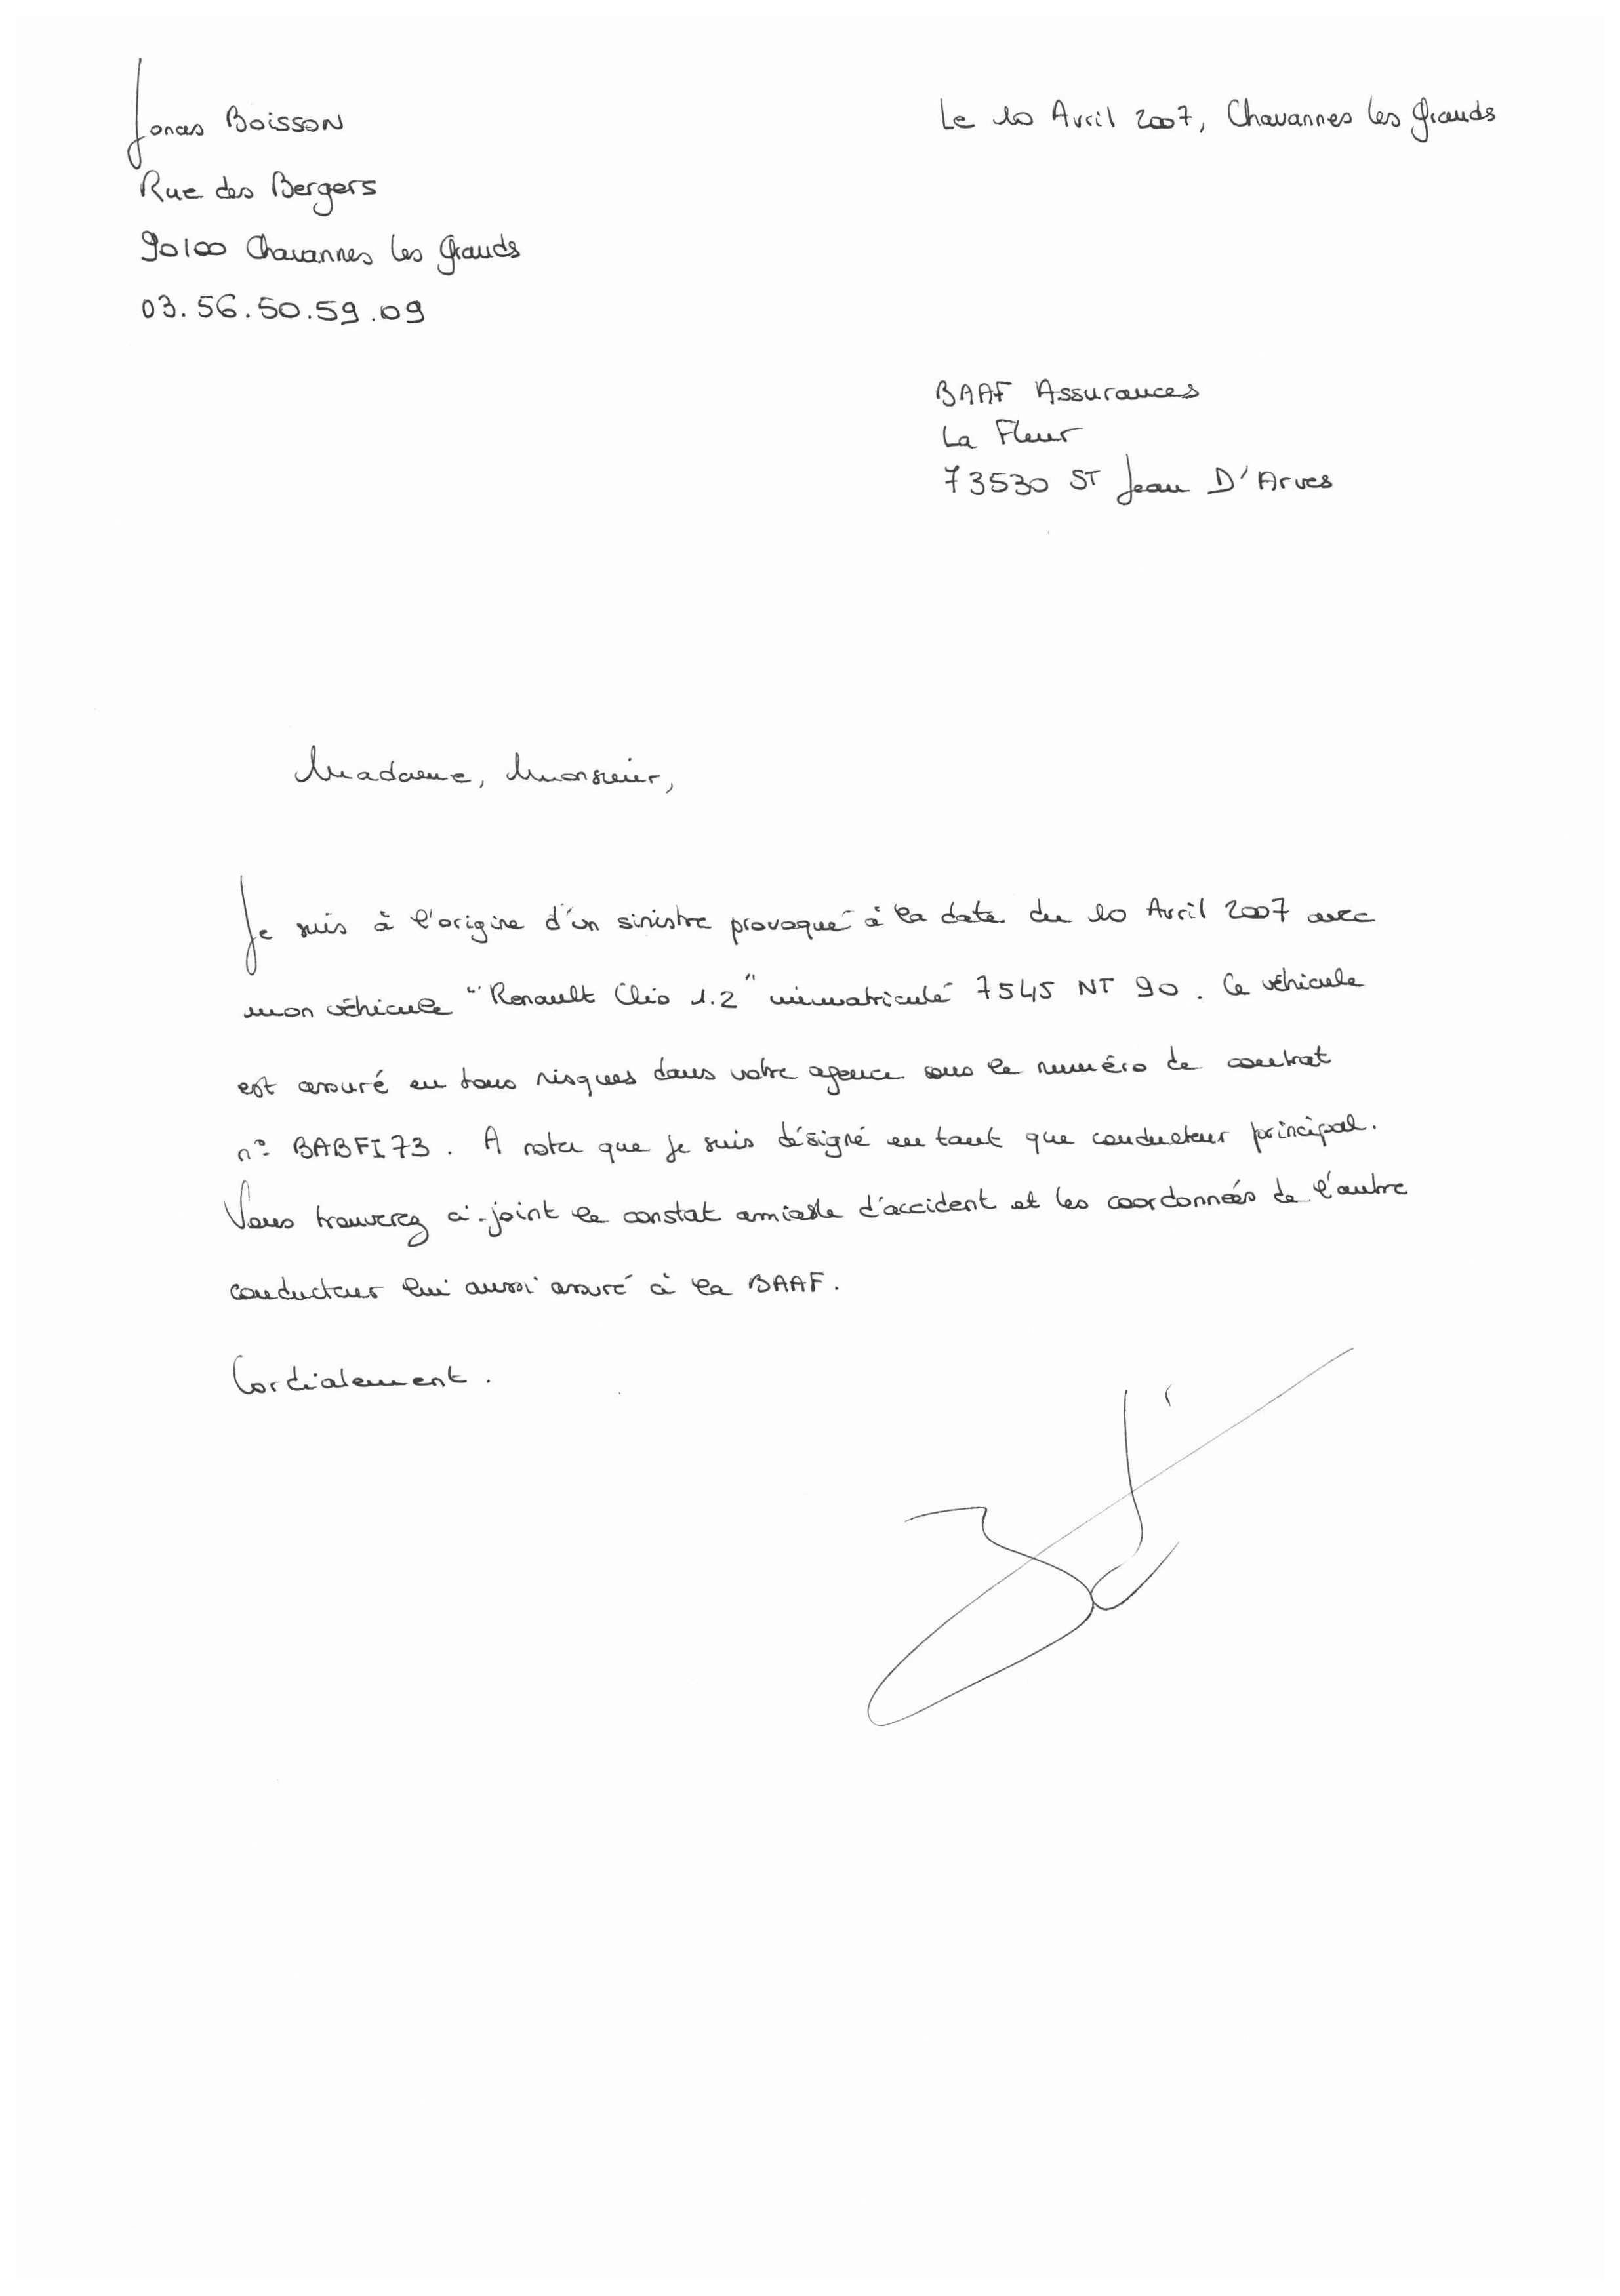 Jonas Boisson
Le 10 Avril 2007, Chavannes les Grands
Rue des Bergers
90100 Chavannes les Grands
03.56.50.59.09
BAAF Assurances
La Fleur
73530 ST Jean D'Arves
Madame, Monsieur,
Je suis à l'origine d'un sinistre provoqué à la date du 10 Avril 2007 avec
mon véhicule "Renault Clio 1.2" immatriculé 7545 NT 90. Ce véhicule
est assuré en tous risques dans votre agence sous le numéro de contrat
n° BABFI73. A noter que je suis désigné en tant que conducteur principal.
Vous trouverez ci-joint le constat amiable d'accident et les coordonnées de l'autre
conducteur lui aussi assuré à la BAAF.
Cordialement.